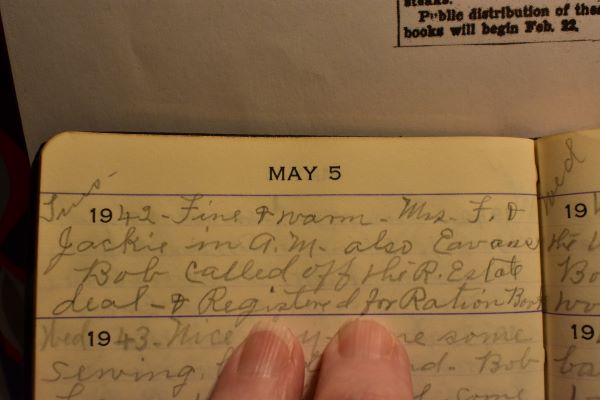 steaks.
Public distribution of these
books will begin Feb. 22.
MAY 5
Tues-
1942- Fine & warm - Mrs. F. &
Jackie in A.M. also Eavans
Bob called off the R. Estate
deal - & Registered for Ration Book
Wed 1943. Nice some
sewing. Bob
some
Wed
19
the
Bo
wo
19
ba